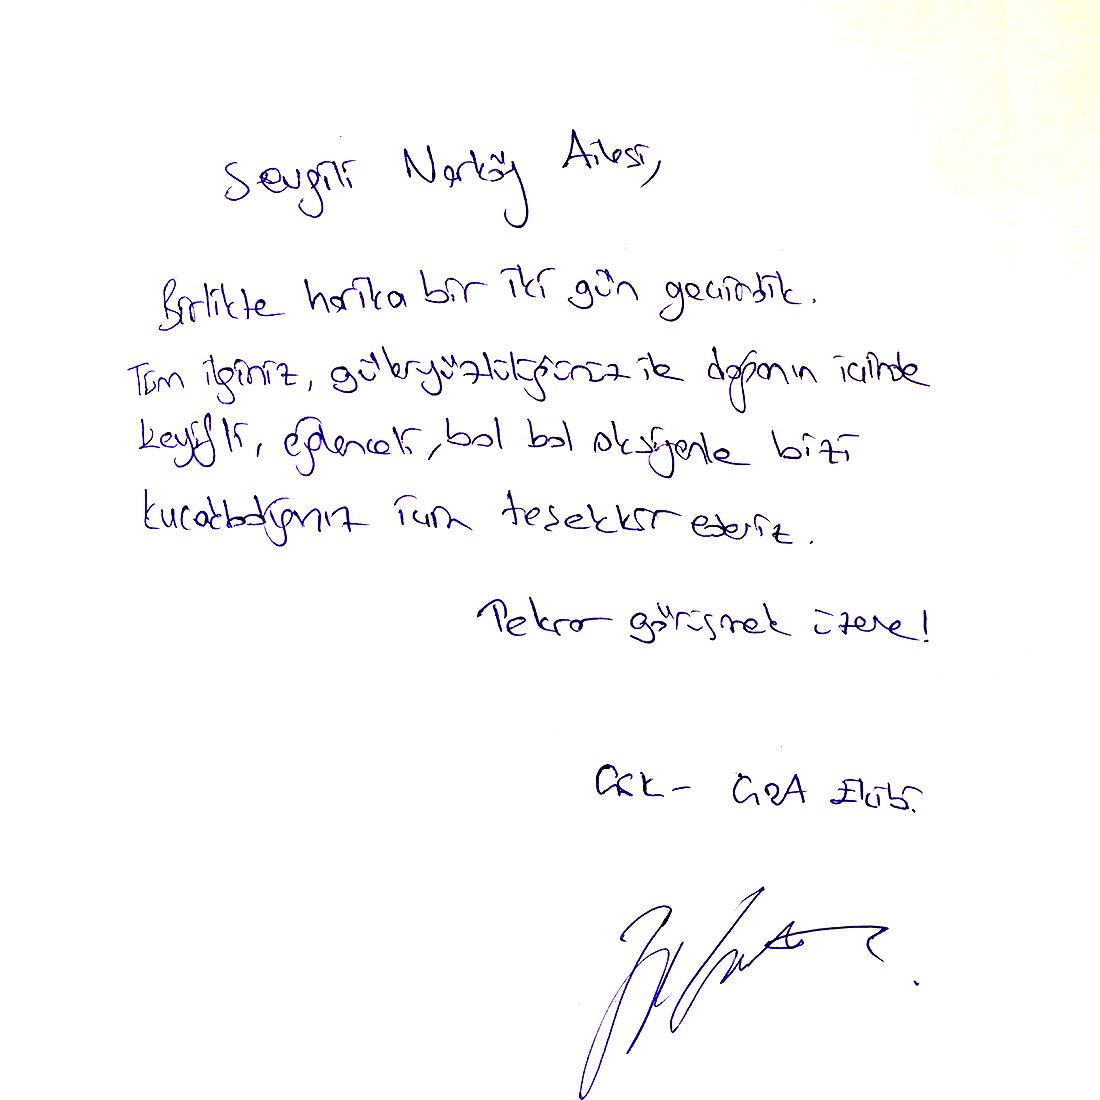 Sevgili Narköy Ailesi,
Birlikte harika bir iki gün geçirdik.
Tüm ilginiz, güleryüzlülüğünüz ile doğanın içinde
keyifli, eğlenceli, bol bol oksijenle bizi
kucakladığınız için teşekkür ederiz.
Tekrar görüşmek üzere!
GSK - Ekibi.